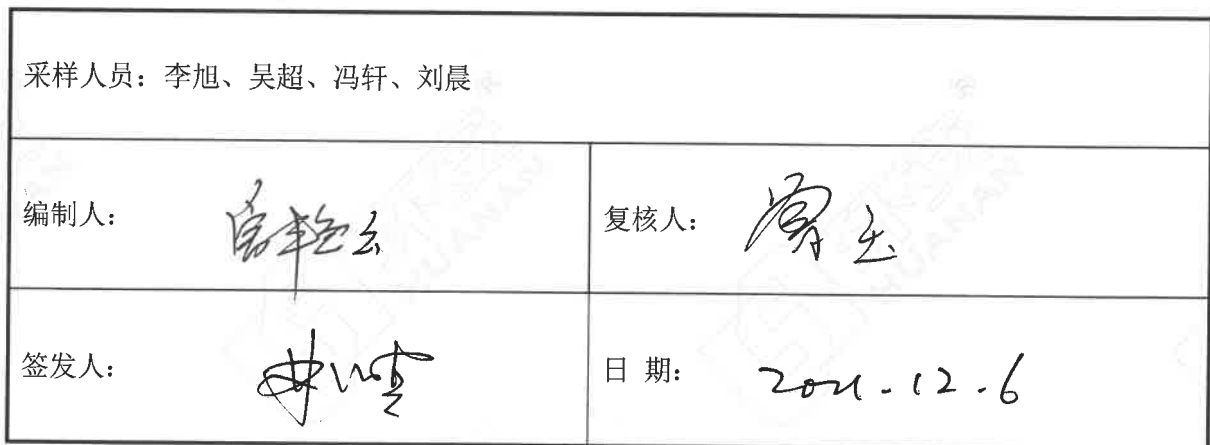 采样人员：李旭、吴超、冯轩、刘晨
编制人：
复核人：
签发人：
日 期： 2021.12.6